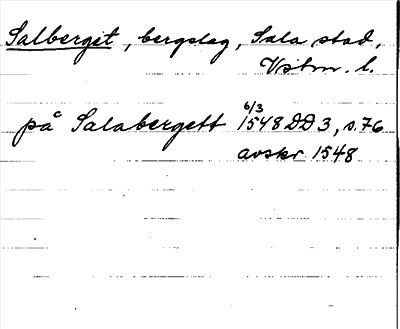 Salberget, bergslag, Sala stad,
Vstm. l.
på Salabergett 6/3 1548 DD 3, s. 76
avskr 1548